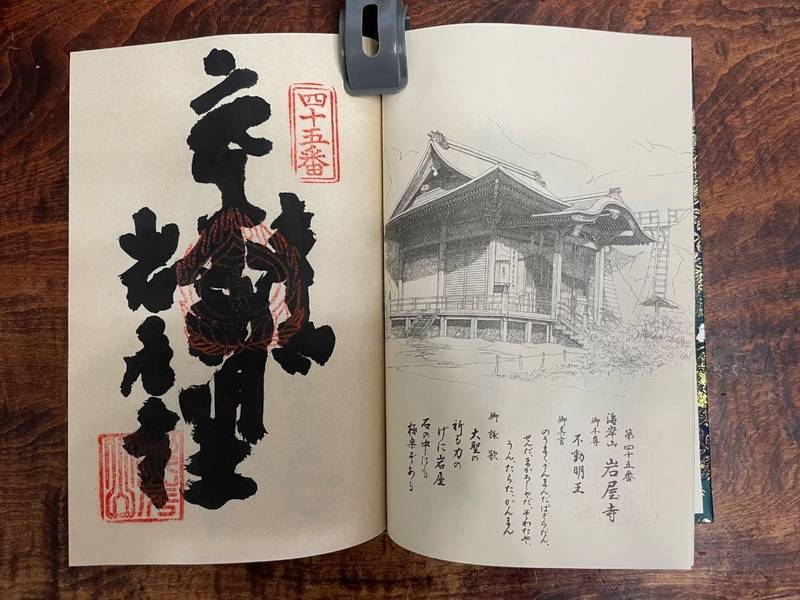 第四十五番
海岸山 岩屋寺
御本尊
不動明王
御真言
のうまくさんまんだ、ばざらだん、
せんだまかろしゃだそわたや、
うん、たらた、かんまん
御詠歌
大聖の
祈る力の
げに岩屋
石の中にも
極楽ぞある
四十五番
明王
岩屋寺